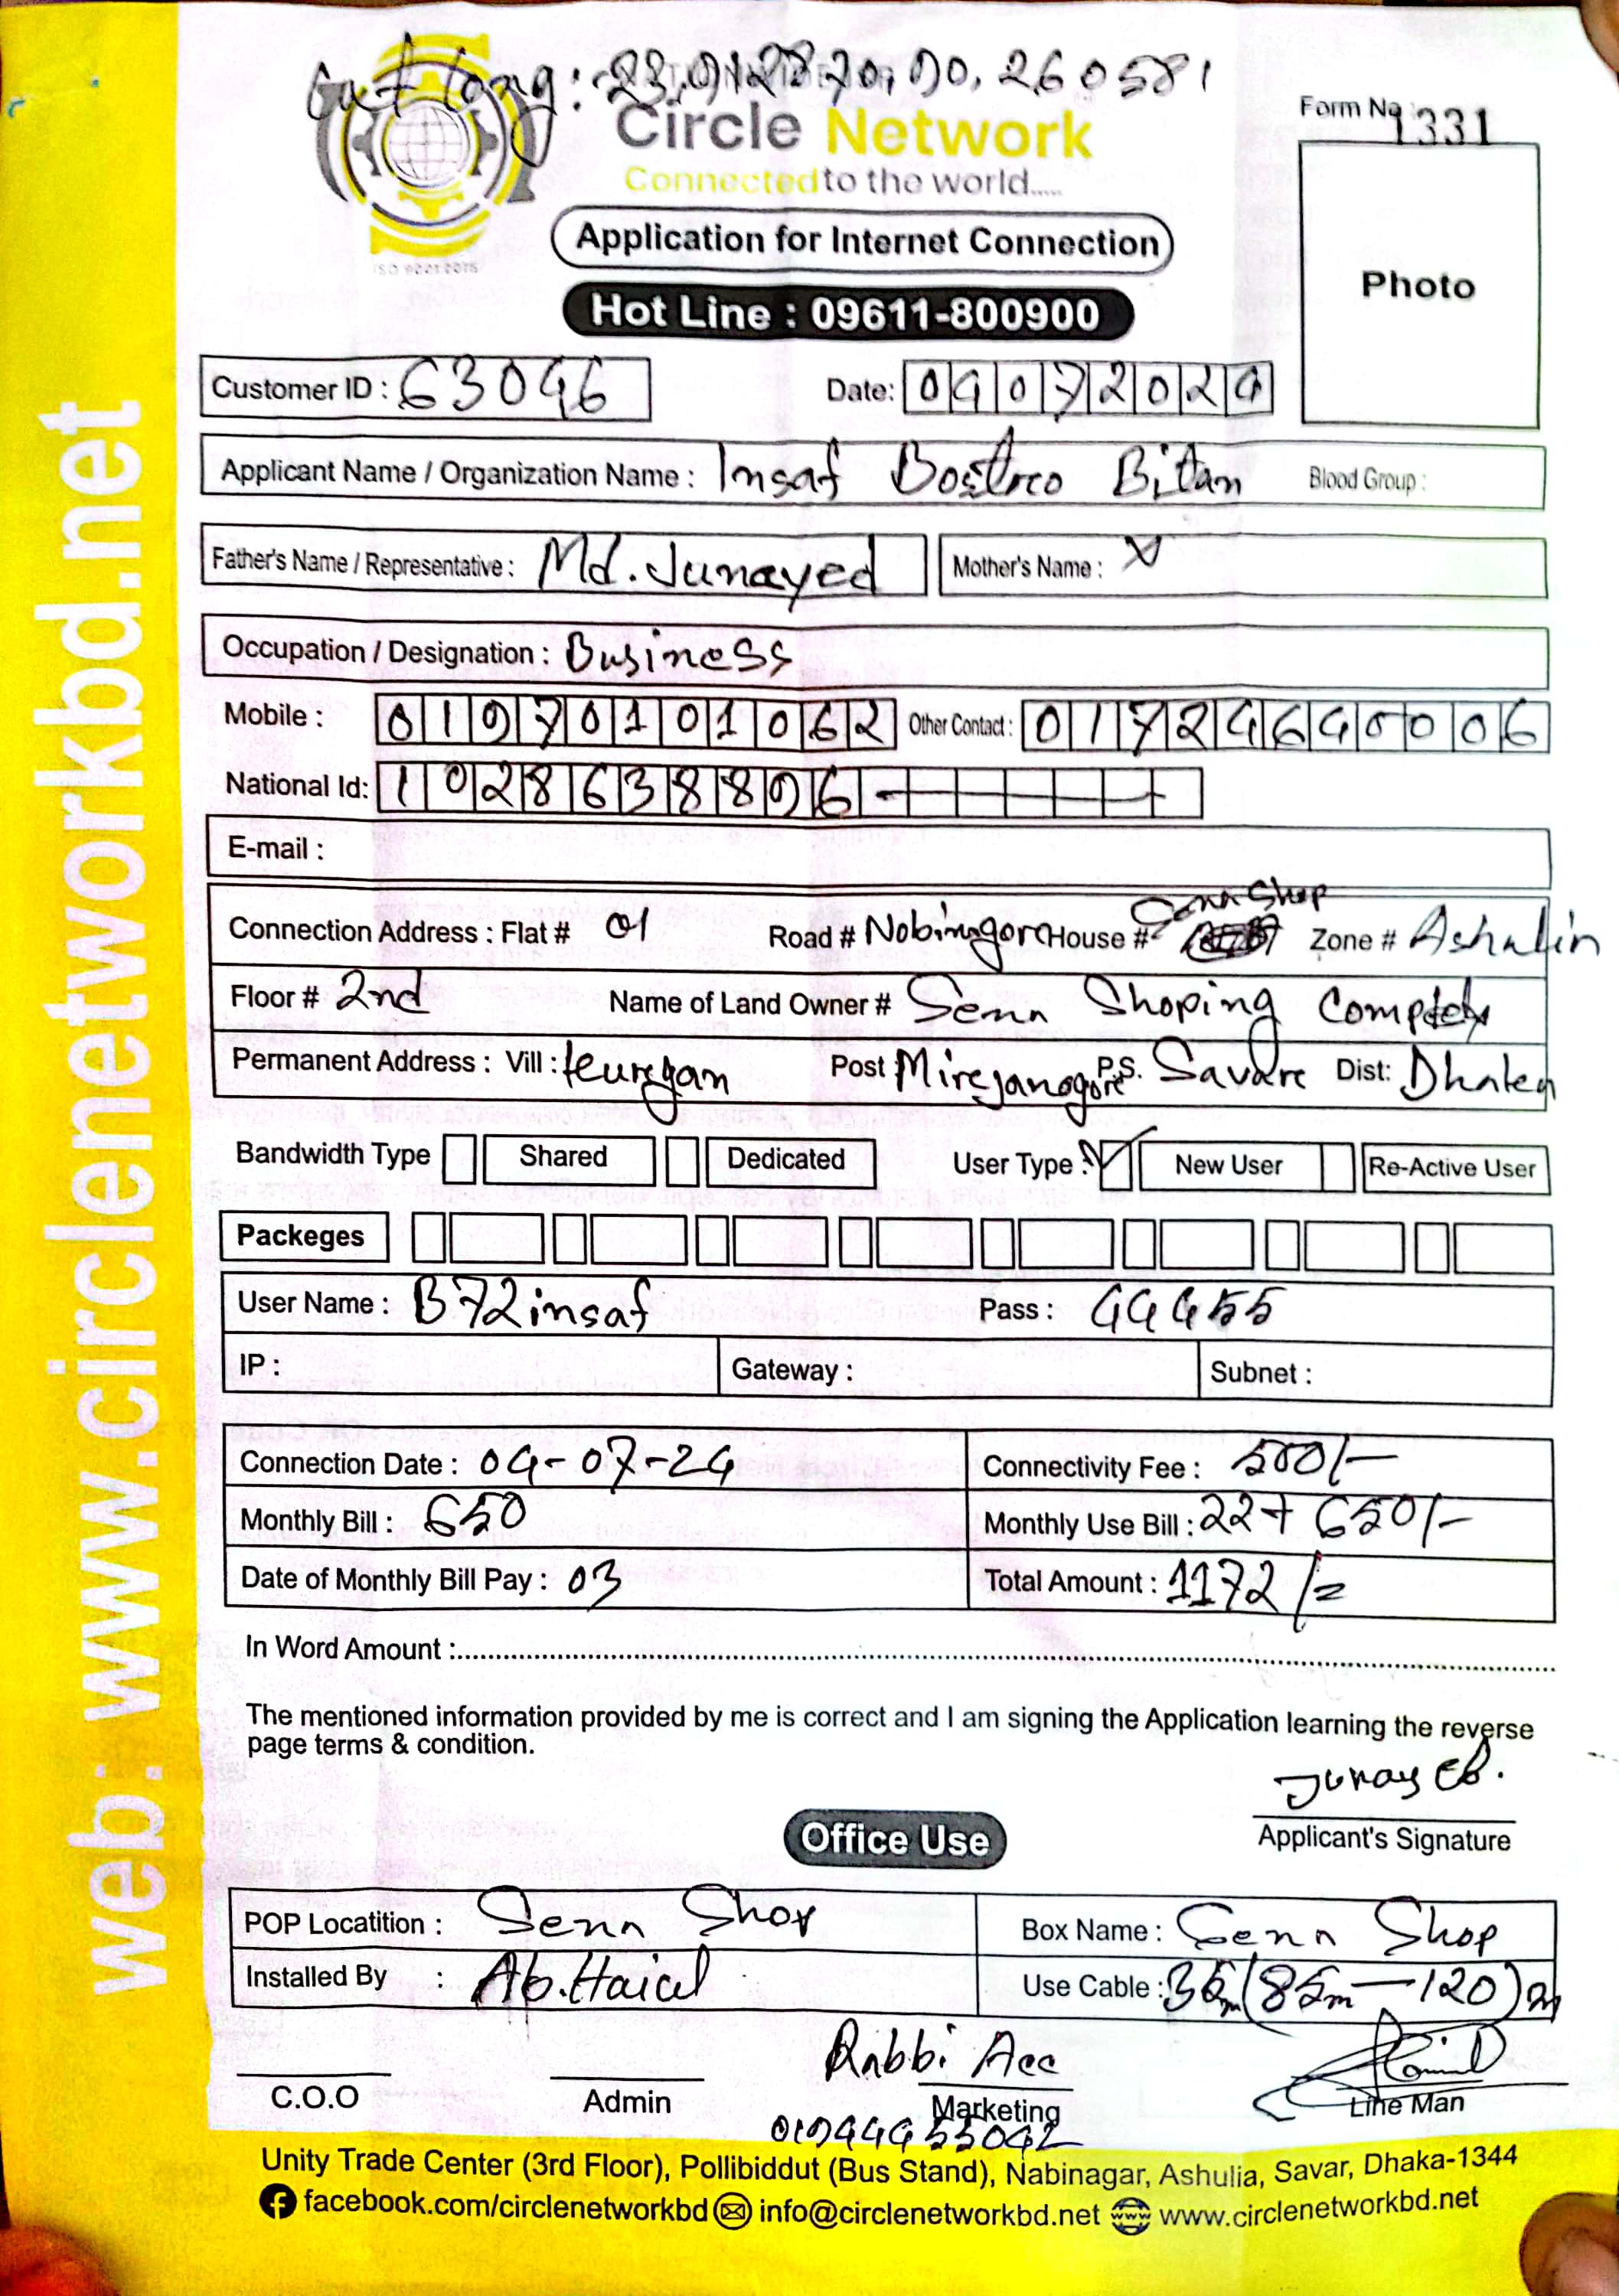 Lat Long: 23.912870, 90.260581
Circle Network
Connected to the world.....
ISO 9001:2015
Form No 1331
Application for Internet Connection
Photo
Hot Line : 09611-800900
Customer ID : 63046 Date: 04072024
Applicant Name / Organization Name : Insaf Bostro Bitan Blood Group :
Father's Name / Representative : Md. Junayed Mother's Name : X
Occupation / Designation : Business
Mobile : 01970101062 Other Contact : 01724640006
National Id: 1028638896
E-mail :
Connection Address : Flat # 01 Road # Nobinagor House # Sena Shop Zone # Ashulia
Floor # 2nd Name of Land Owner # Sena Shoping Complex
Permanent Address : Vill : Post Mirejanagore P.S. Savare Dist: Dhaka
Bandwidth Type Shared Dedicated User Type : New User Re-Active User
Packeges
User Name : B72insaf Pass : 44455
IP : Gateway : Subnet :
Connection Date : 04-07-24 Connectivity Fee : 500/-
Monthly Bill : 650 Monthly Use Bill : 22+650/-
Date of Monthly Bill Pay : 03 Total Amount : 1172/=
In Word Amount :
The mentioned information provided by me is correct and I am signing the Application learning the reverse
page terms & condition.
Junayed.
Applicant's Signature
Office Use
POP Locatition : Senn Shop Box Name : Senn Shop
Installed By : Ab. Haial Use Cable : 35m (85m - 120)m
Rabbi Acc
C.O.O Admin Marketing Line Man
01944455042
Unity Trade Center (3rd Floor), Pollibiddut (Bus Stand), Nabinagar, Ashulia, Savar, Dhaka-1344
facebook.com/circlenetworkbd info@circlenetworkbd.net www.circlenetworkbd.net
web: www.circlenetworkbd.net